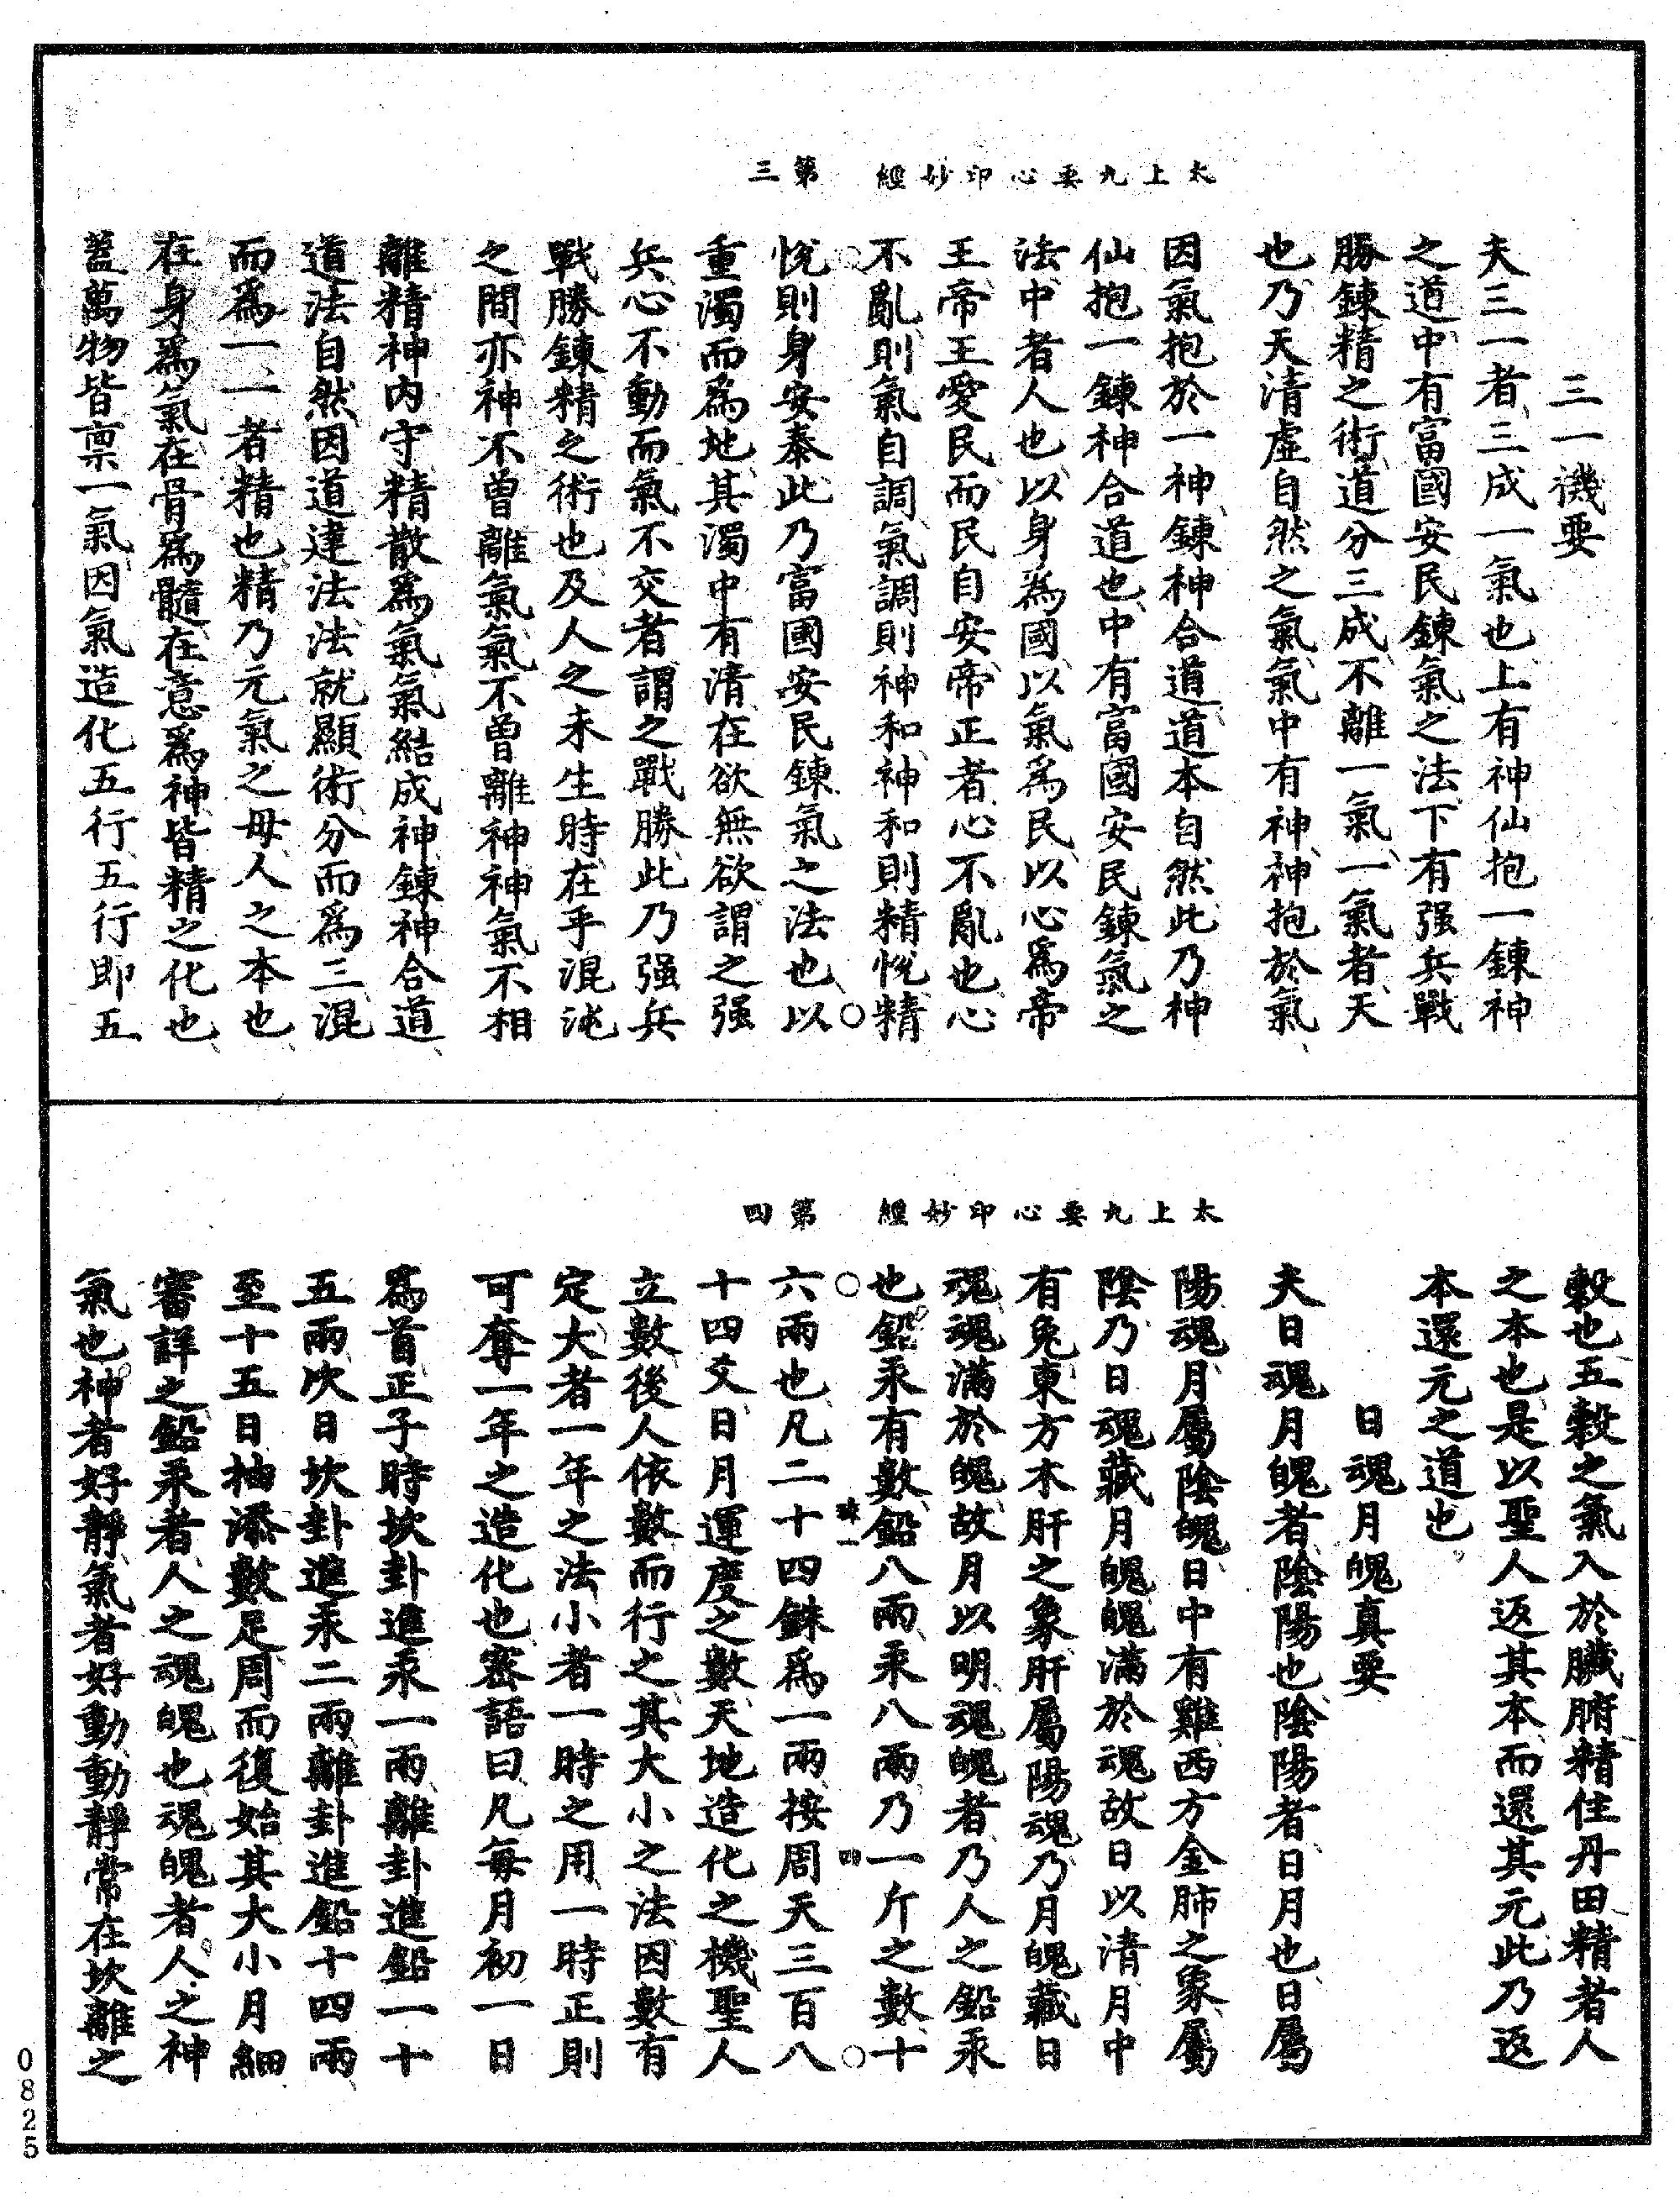 太上九要心印妙經　第三
三一機要
夫三一者三成一氣也上有神仙抱一鍊神
之道中有富國安民鍊氣之法下有强兵戰
勝鍊精之術道分三成不離一氣一氣者天
也乃天清虛自然之氣氣中有神神抱於氣
因氣抱於一神鍊神合道道本自然此乃神
仙抱一鍊神合道也中有富國安民鍊氣之
法中者人也以身爲國以氣爲民以心爲帝
王帝王愛民而民自安帝正者心不亂也心
不亂則氣自調氣調則神和神和則精悅精
悅則身安泰此乃富國安民鍊氣之法也以
重濁而爲地其濁中有清在欲無欲謂之强
兵心不動而氣不交者謂之戰勝此乃强兵
戰勝鍊精之術也及人之未生時在乎混沌
之間亦神不曾離氣氣不曾離神神氣不相
離精神内守精散爲氣氣結成神鍊神合道
道法自然因道建法法就顯術分而爲三混
而爲一一者精也精乃元氣之母人之本也
在身爲氣在骨爲髓在意爲神皆精之化也
蓋萬物皆禀一氣因氣造化五行五行即五
太上九要心印妙經　第四
穀也五穀之氣入於臟腑精住丹田精者人
之本也是以聖人返其本而還其元此乃返
本還元之道也
日魂月魄真要
夫日魂月魄者陰陽也陰陽者日月也日屬
陽魂月屬陰魄日中有雞西方金肺之象屬
陰乃日魂藏月魄魄滿於魂故日以清月中
有兔東方木肝之象肝屬陽魂乃月魄藏日
魂魂滿於魄故月以明魂魄者乃人之鉛汞
也鉛汞有數鉛八兩汞八兩乃一斤之數十
六兩也凡二十四銖爲一兩按周天三百八
十四爻日月運度之數天地造化之機聖人
立數後人依數而行之其大小之法因數有
定大者一年之法小者一時之用一時正則
可奪一年之造化也密語曰凡每月初一日
爲首正子時坎卦進汞一兩離卦進鉛一十
五兩次日坎卦進汞二兩離卦進鉛十四兩
至十五日抽添數足周而復始其大小月細
審詳之鉛汞者人之魂魄也魂魄者人之神
氣也神者好靜氣者好動動靜常在坎離之
0825